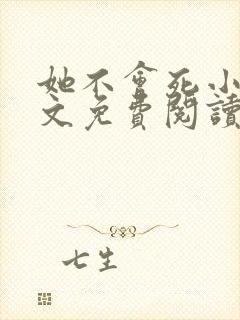 她不會死小
文免費閱讀
七生